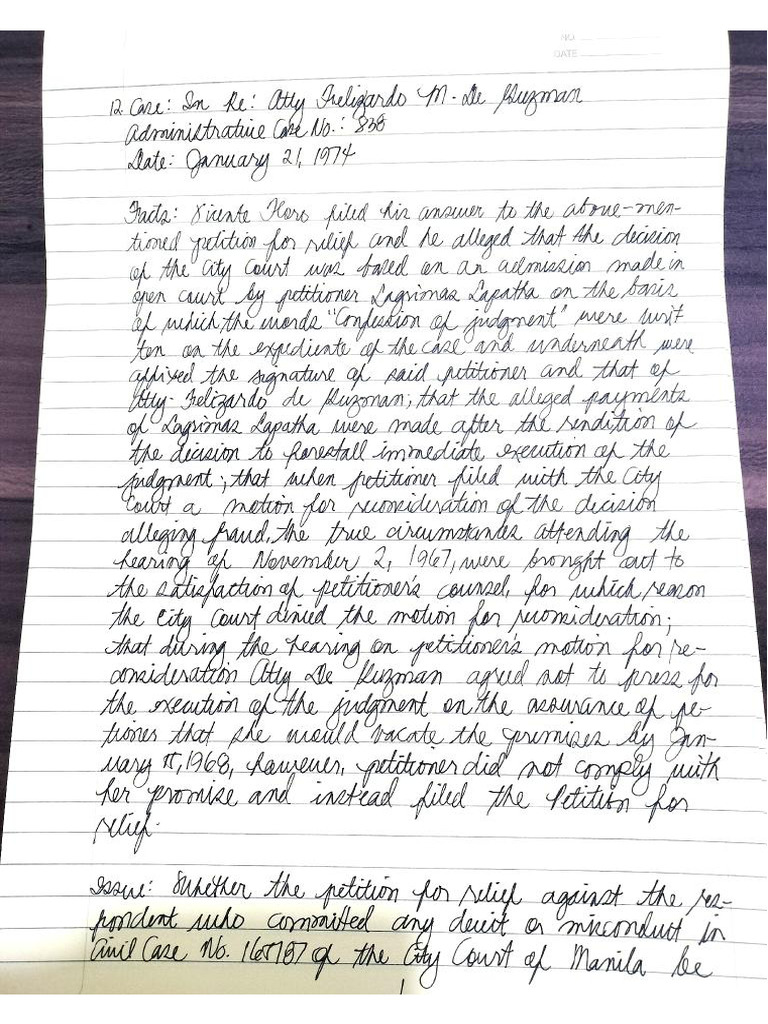 NO.
DATE
12. Case: In Re: Atty Felizardo M. De Guzman
Administrative Case No.: 838
Date: January 21, 1974
Facts: Vicente Floro filed his answer to the above-men-
tioned petition for relief and he alleged that the decision
of the City Court was based on an admission made in
open court by petitioner Lagrimas Lapatha on the basis
of which, the words "Confession of judgment" were writ
ten on the expediente of the case and underneath were
affixed the signature of said petitioner and that of
Atty. Felizardo de Guzman; that the alleged payments
of Lagrimas Lapatha were made after the rendition of
the decision to forestall immediate execution of the
judgment; that when petitioner filed with the City
Court a motion for reconsideration of the decision
alleging fraud, the true circumstances attending the
hearing of November 2, 1967, were brought out to
the satisfaction of petitioner's counsel, for which reason
the City Court denied the motion for reconsideration;
that during the hearing on petitioner's motion for re-
consideration Atty De Guzman agreed not to press for
the execution of the judgment on the assurance of pe-
tioner that she would vacate the premises by Jan-
uary 15, 1968, however, petitioner did not comply with
her promise and instead filed the Petition for
relief.
Issue: Whether the petition for relief against the res-
pondent who committed any deceit or misconduct in
Civil Case No. 165187 of the City Court of Manila be